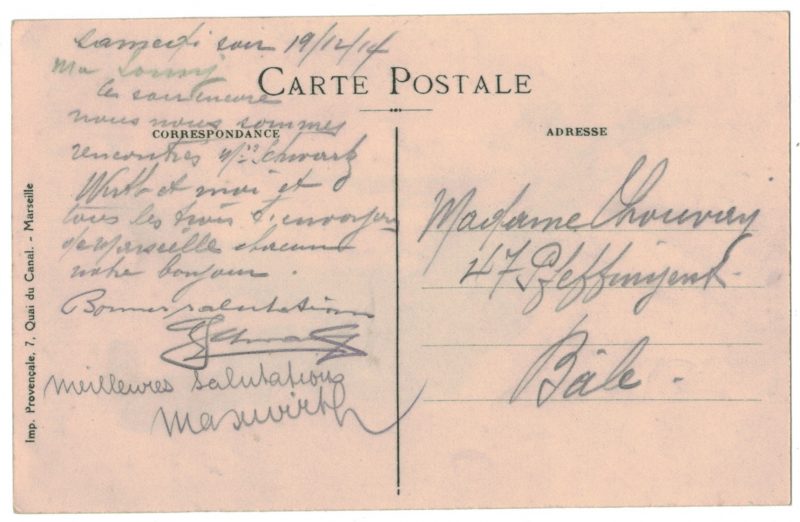 Samedi soir 19/12/14
CARTE POSTALE
Ma
Ce soir encore
nous nous sommes
CORRESPONDANCE
rencontrés Schwartz
Wirth et moi et
tous les trois t'envoyons
de Marseille chacun
notre bonjour.
Bonnes salutations
Meilleures salutations
Max Wirth
Imp. Provençale, 7, Quai du Canal. - Marseille
ADRESSE
Madame Chouvay
47 Pfeffingerst.
Bâle.